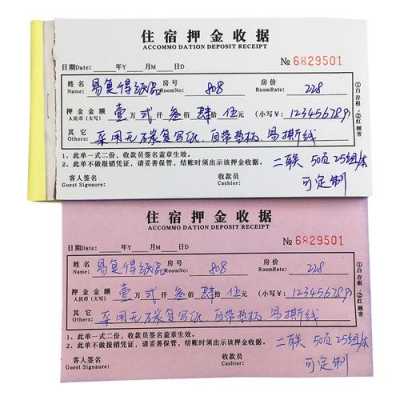 住宿押金收据
ACCOMMO DATION DEPOSIT RECEIPT
日期Date: 年Y 月M 日D № 6829501
姓名 易复得纸品 房号 808 房价 228
Name: Room: RoomRate:
押金金额 壹万贰仟叁佰肆拾伍元 (小写¥): 123456789
人民币(大写)
其它 采用无碳复写纸，自带垫板 易撕线
Others:
1、此单一式二份，收款员签名盖章生效。
2、此单不做报销凭证，请妥善保管，结帐时须出示该押金收据。
客人签名 收款员
Guest Signaure: Cashier:
二联 50页 25组/本
可定制
①白存根 ②红顾客
住宿押金收据
ACCOMMO DATION DEPOSIT RECEIPT
日期Date: 年Y 月M 日D № 6829501
姓名 易复得纸品 房号 808 房价 228
Name: Room: RoomRate:
押金金额 壹万贰仟叁佰肆拾伍元 (小写¥): 123456789
人民币(大写)
其它 采用无碳复写纸，自带垫板 易撕线
Others:
1、此单一式二份，收款员签名盖章生效。
2、此单不做报销凭证，请妥善保管，结帐时须出示该押金收据。
客人签名 收款员
Guest Signaure: Cashier:
二联 50页 25组/本
可定制
①白存根 ②红顾客